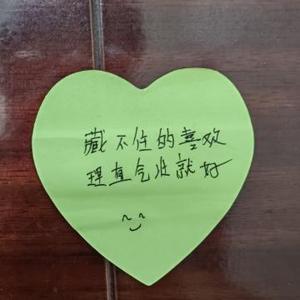 藏不住的喜欢
理直气壮就好